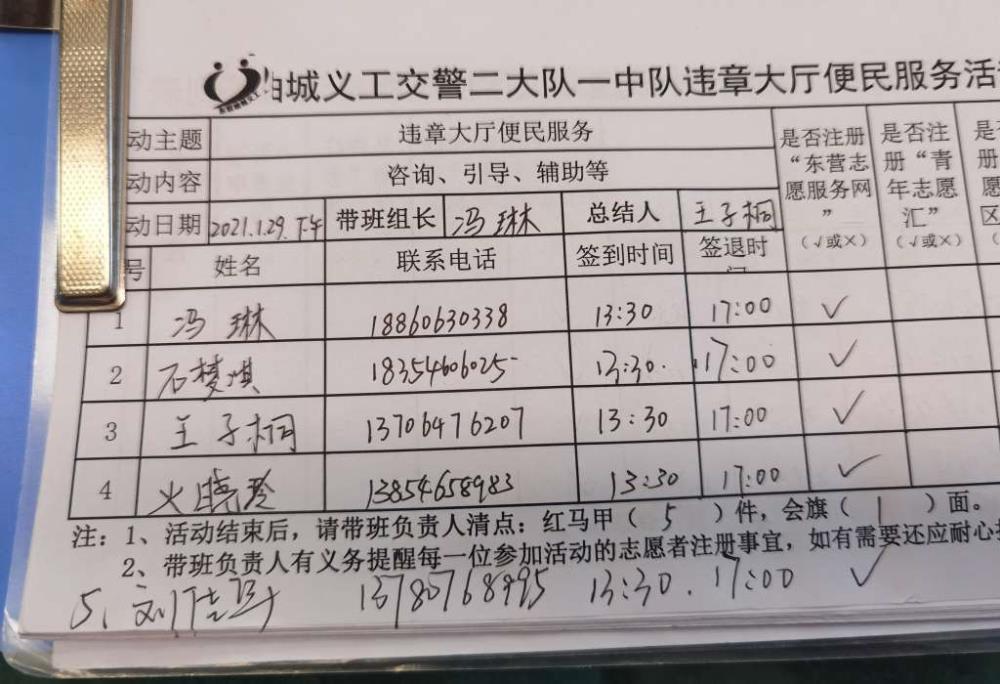 城义工交警二大队一中队违章大厅便民服务活
动主题 违章大厅便民服务 是否注册“东营志愿服务网”（√或×） 是否注册“青年志愿汇”（√或×） 是 册 愿 区
动内容 咨询、引导、辅助等
动日期 2021.1.29.下午 带班组长 冯琳 总结人 王子桐
号 姓名 联系电话 签到时间 签退时间
1 冯琳 18860630338 13:30 17:00 √
2 石梦淇 18354606025 13:30. 17:00 √
3 王子桐 13706476207 13:30 17:00 √
4 火晓玲 13854658983 13:30 17:00 √
注：1、活动结束后，请带班负责人清点：红马甲（ 5 ）件，会旗（ 1 ）面。
2、带班负责人有义务提醒每一位参加活动的志愿者注册事宜，如有需要还应耐心
5、刘 13780768995 13:30. 17:00 √